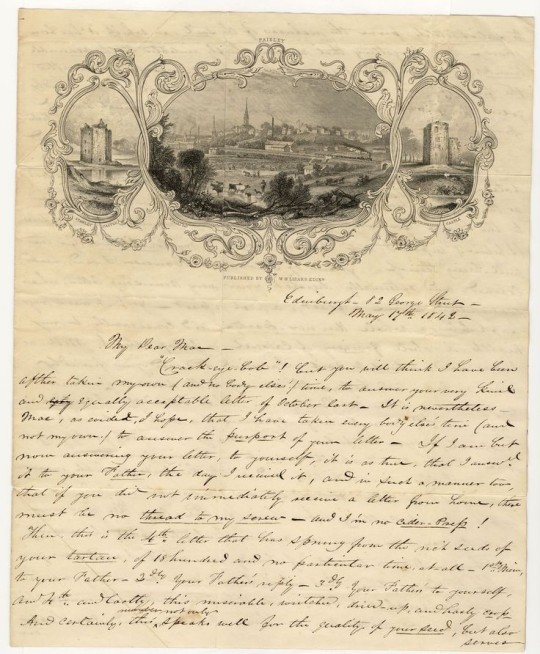 PAISLEY
PUBLISHED BY W.W.
Edinburgh - 82 George Street -
May 17th 1842 -
My Dear Mac -
"Crack-eye-Bob"! but you will think I have been
after takin my own (and no body else's) time, to answer your very kind
and equally acceptable letter of October last - It is, nevertheless -
Mac, as evident, I hope, that I have taken every body else's time (and
not my own -) to answer the purport of your letter - If I am but
now answering your letter, to yourself, it is as true, that I answd.
it to your Father, the day I received it, and in such a manner too,
that if you did not immediately receive a letter from home, there
must be no thread to my screw - and I'm no
Then, this is the 4th letter that has sprung from the rich seeds of
your tartan, of 18 hundred and no particular time at all - 1st Mine,
to your Father - 2dly Your Father's reply - 3dly Your Father to yourself,
and 4th and Lastly, this miserable, wretched, dried-up, and hasty crop
not only
And certainly, this speaks well for the quality of your seed, but also
serves